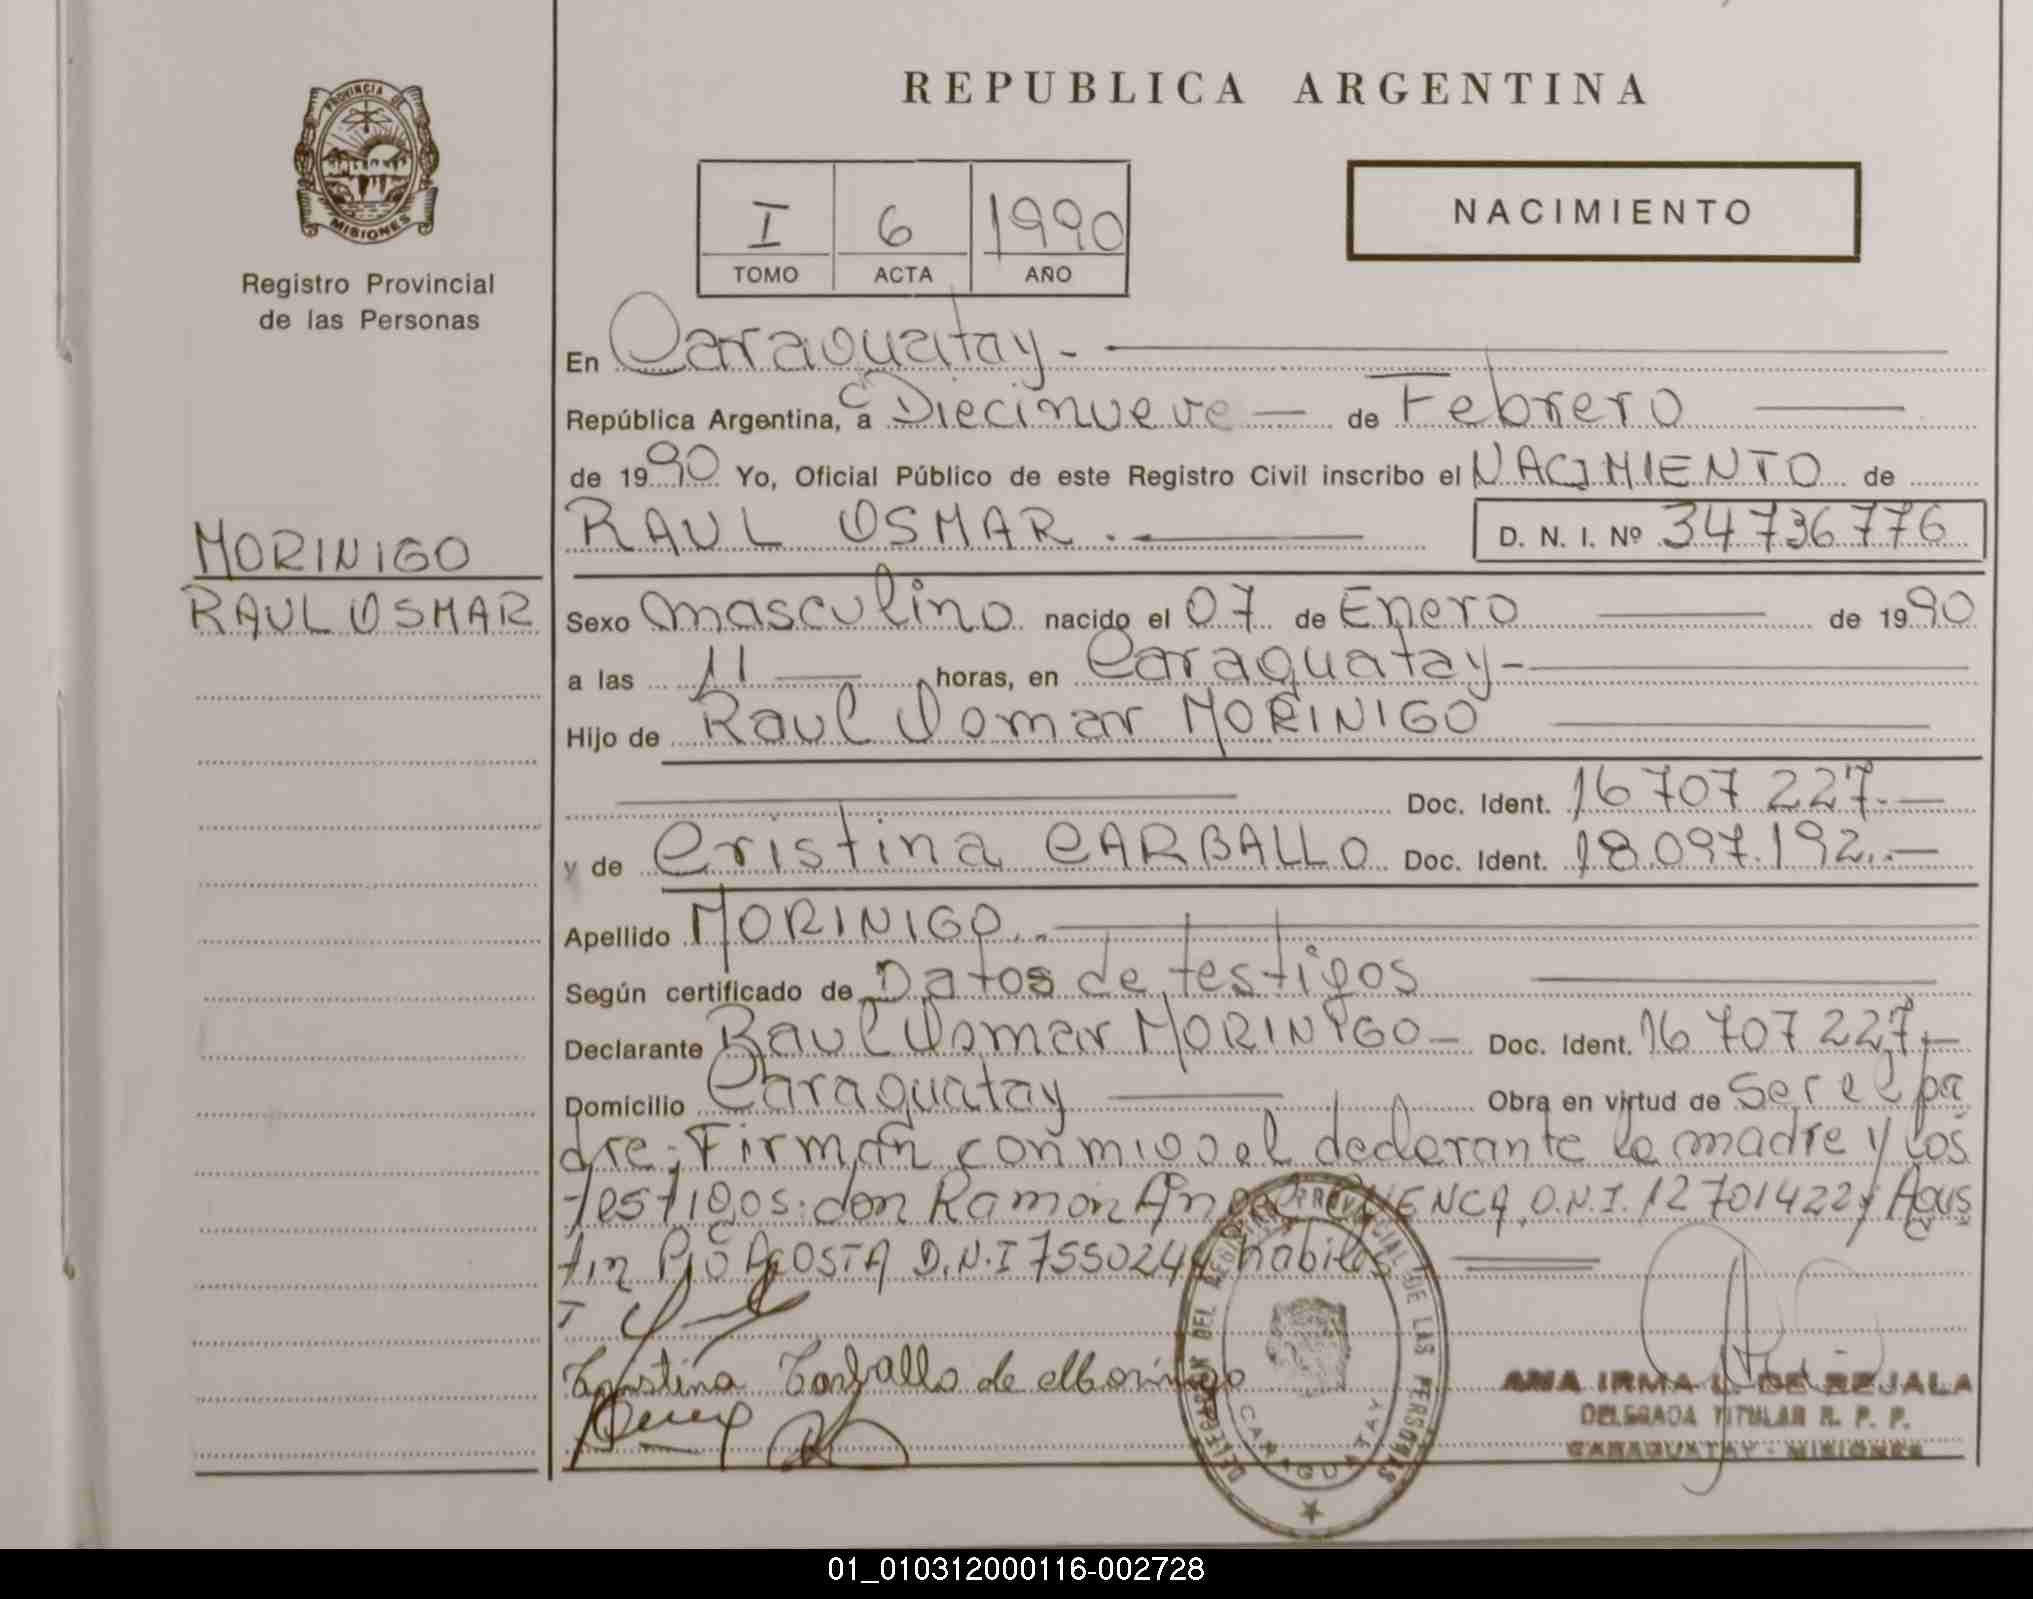 PROVINCIA DE
MISIONES
Registro Provincial
de las Personas
MORINIGO
RAUL OSMAR
REPUBLICA ARGENTINA
I 6 1990
TOMO ACTA AÑO
NACIMIENTO
En Caraguatay -
República Argentina, a Diecinueve — de Febrero
de 1990 Yo, Oficial Público de este Registro Civil inscribo el NACIMIENTO de
RAUL OSMAR . D. N. I. Nº 34736776
Sexo masculino nacido el 07 de Enero de 1990
a las 11 horas, en Caraguatay -
Hijo de Raul Osmar MORINIGO
Doc. Ident. 16 707 227.-
y de Cristina CARBALLO Doc. Ident. 18.097.192..-
Apellido MORINIGO..-
Según certificado de Datos de testigos
Declarante Raul Osmar MORINIGO - Doc. Ident. 16 707 227,-
Domicilio Caraguatay Obra en virtud de ser el pa
dre; Firman conmigo el declarante la madre y los
testigos: don Ramón Angel CUENCA, D.N.I. 12701422 y Agus
tin Pío ACOSTA D.N.I 7550244 habiles
Cristina Carballo de Morinigo
DELEGACION DEL REGISTRO PROVINCIAL DE LAS PERSONAS
CARAGUATAY
ANA IRMA L. DE BEJALA
DELEGADA TITULAR R. P. P.
CARAGUATAY - MISIONES
01_010312000116-002728